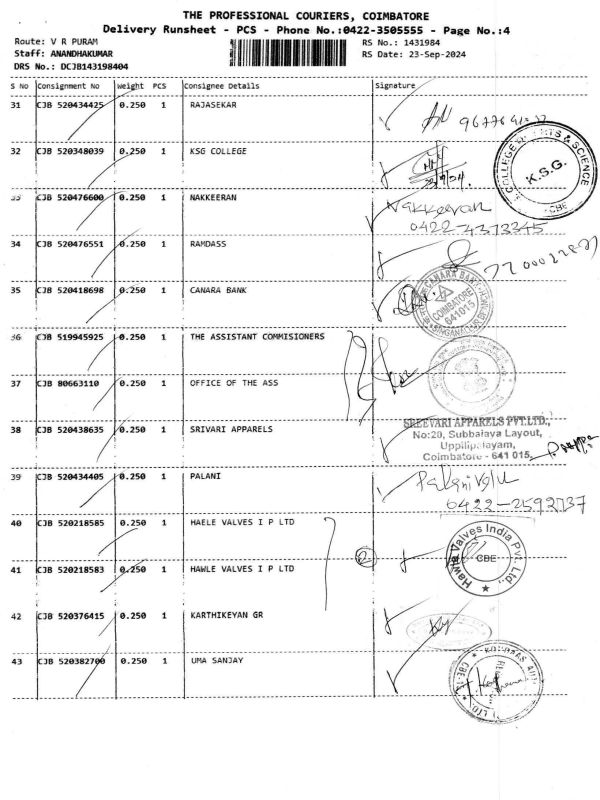 THE PROFESSIONAL COURIERS, COIMBATORE
Delivery Runsheet - PCS - Phone No.:0422-3505555 - Page No.:4
Route: V R PURAM
RS No.: 1431984
Staff: ANANDHAKUMAR
RS Date: 23-Sep-2024
DRS No.: DCJB143198404
S No Consignment No Weight PCS Consignee Details Signature
31 CJB 520434425 0.250 1 RAJASEKAR
32 CJB 520348039 0.250 1 KSG COLLEGE
COLLEGE ARTS & SCIENCE
K.S.G.
CBE
33 CJB 520476600 0.250 1 NAKKEERAN Nakkeeran
0422-4373345
34 CJB 520476551 0.250 1 RAMDASS
35 CJB 520418698 0.250 1 CANARA BANK
CANARA BANK
COIMBATORE
641015
36 CJB 519945925 0.250 1 THE ASSISTANT COMMISIONERS
37 CJB 80663110 0.250 1 OFFICE OF THE ASS
38 CJB 520438635 0.250 1 SRIVARI APPARELS
SREEVARI APPARELS PVT.LTD.,
No:20, Subbalaya Layout,
Uppilipalayam,
Coimbatore - 641 015.
39 CJB 520434405 0.250 1 PALANI Palanivelu
0422-2592737
40 CJB 520218585 0.250 1 HAELE VALVES I P LTD
41 CJB 520218583 0.250 1 HAWLE VALVES I P LTD
2
Hawle Valves India Pvt. Ltd.,
CBE
42 CJB 520376415 0.250 1 KARTHIKEYAN GR
43 CJB 520382700 0.250 1 UMA SANJAY